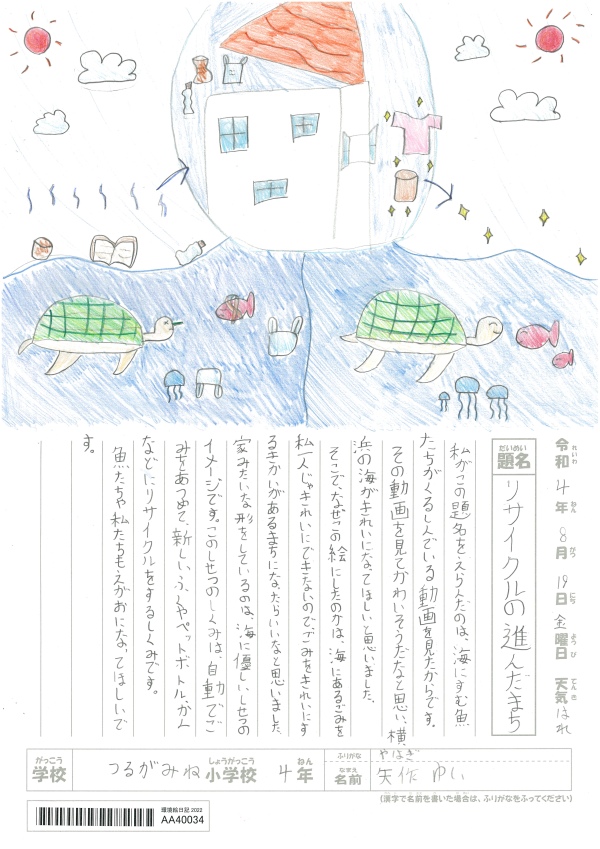 令和4年8月19日金曜日 天気はれ
れいわ ねん がつ にち ようび てんき
題名 リサイクルの進んだまち
だいめい
私がこの題名をえらんだのは、海にすむ魚
たちがくるしんでいる動画を見たからです。
その動画を見てかわいそうだなと思い、横
浜の海がきれいになってほしいと思いました。
そこで、なぜこの絵にしたのかは、海にあるごみを
私一人じゃきれいにできないので、ごみをきれいにす
るきかいがあるまちになったらいいなと思いました。
家みたいな形をしているのは、海に優しいしせつの
イメージです。このしせつのしくみは、自動でご
みをあつめて、新しいふくやペットボトル、かん
などにリサイクルをするしくみです。
魚たちや私たちもえがおになってほしいで
す。
がっこう しょうがっこう ねん ふりがな やはぎ
学校 つるがみね小学校 4年 なまえ 名前 矢作 ゆい
(漢字で名前を書いた場合は、ふりがなをふってください)
環境絵日記 2022
AA40034